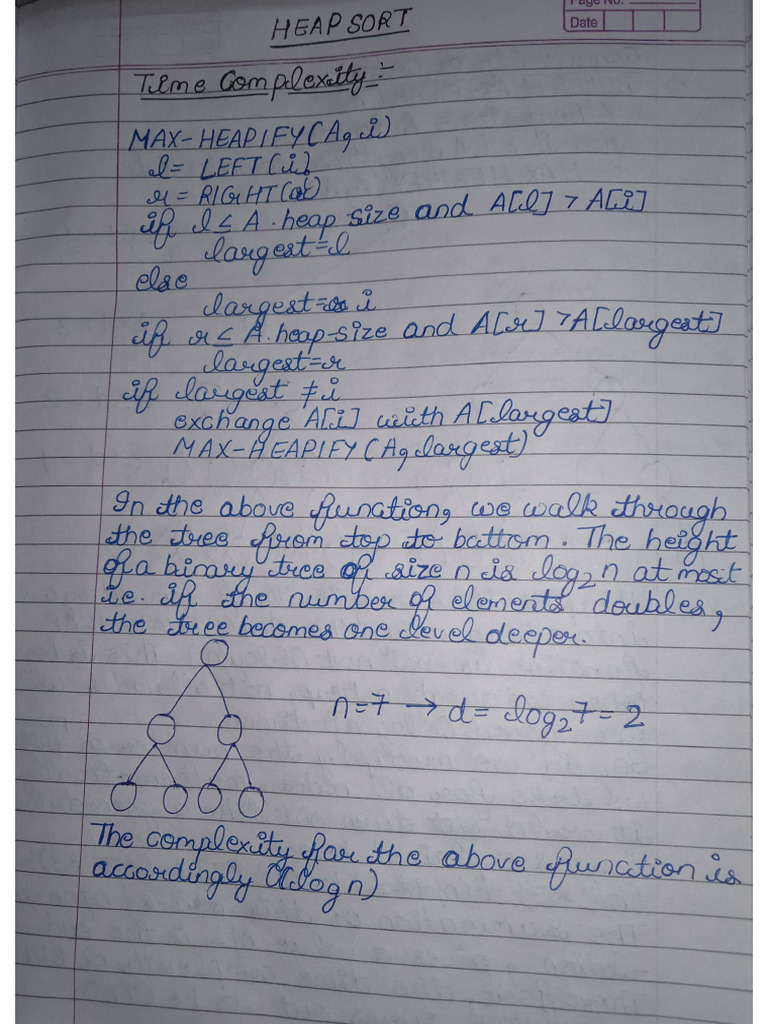 Page No.
Date
HEAP SORT
Time Complexity:-
MAX-HEAPIFY(A, i)
l = LEFT(i)
r = RIGHT(i)
if l ≤ A.heap size and A[l] > A[i]
largest=l
else
largest= i
if r ≤ A.heap-size and A[r] > A[largest]
largest=r
if largest ≠ i
exchange A[i] with A[largest]
MAX-HEAPIFY(A, largest)
In the above function, we walk through
the tree from top to bottom. The height
of a binary tree of size n is log₂n at most
ie. if the number of elements doubles,
the tree becomes one level deeper.
n=7 → d= log₂7=2
The complexity for the above function is
accordingly O(log n)